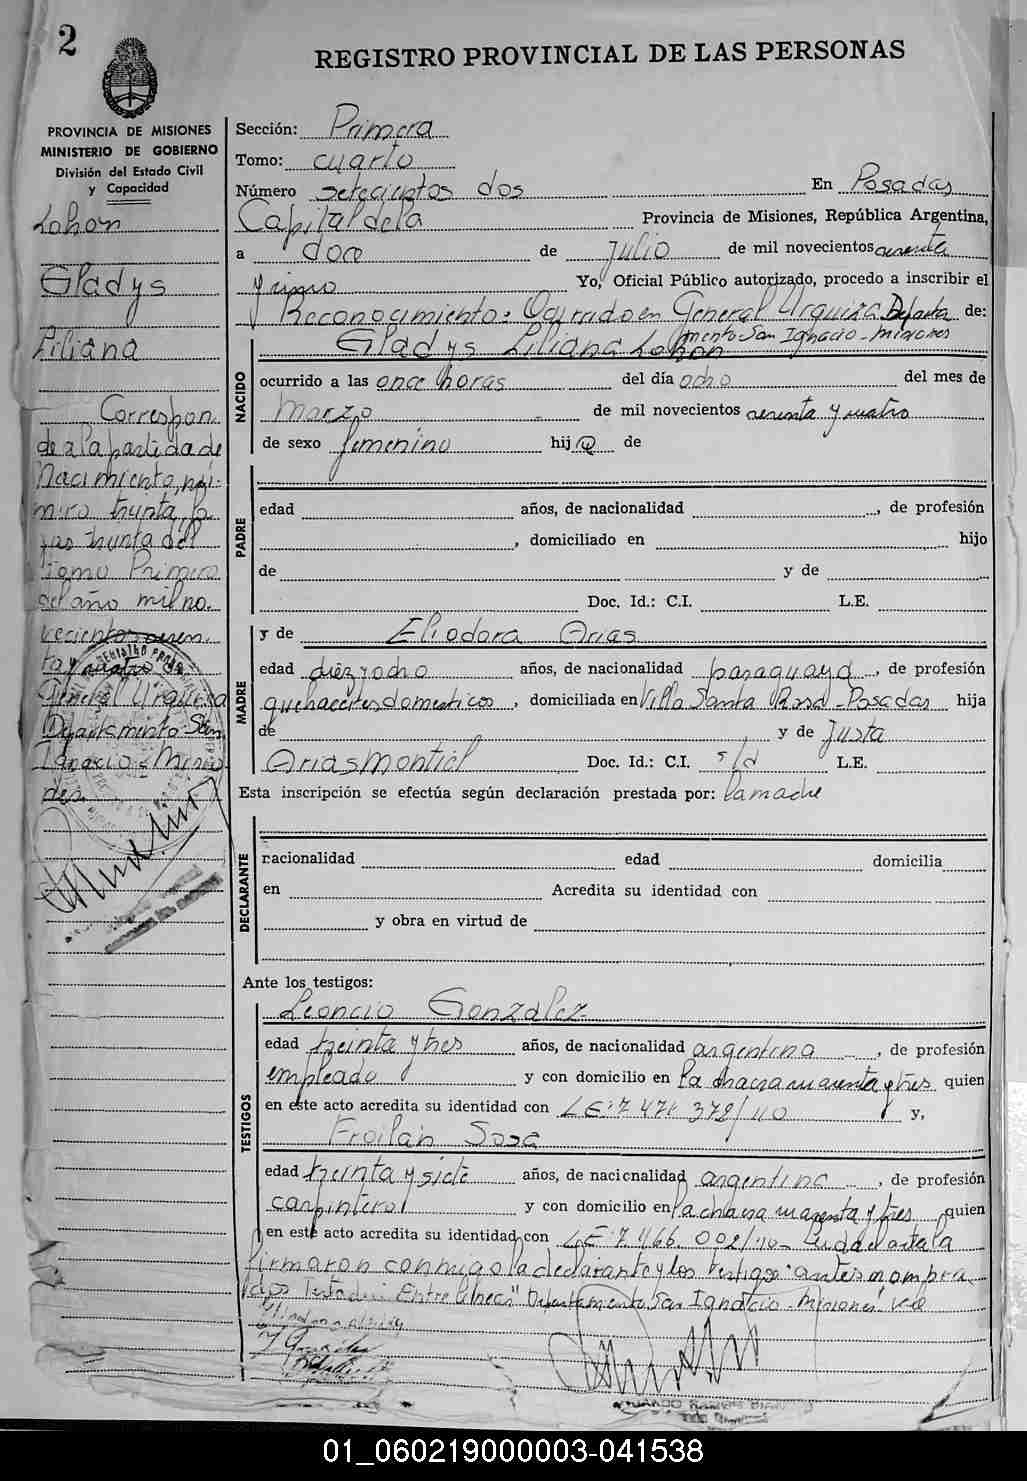 2
REGISTRO PROVINCIAL DE LAS PERSONAS
PROVINCIA DE MISIONES
MINISTERIO DE GOBIERNO
División del Estado Civil
y Capacidad
Lohon
Gladys
Liliana
Correspon
de a la partida de
Nacimiento, nú-
mero treinta, fo
jas treinta del
Tomo Primero
del año mil no-
vecientos sesen
ta y cuatro
General Urquiza
Departamento San
Ignacio - Misio
nes.
Sección: Primera
Tomo: cuarto
Número setecientos dos En Posadas
Capital de la Provincia de Misiones, República Argentina,
a doce de Julio de mil novecientos
y Yo, Oficial Público autorizado, procedo a inscribir el
Reconocimiento: Ocurrido en General Urquiza Departa de:
mento San Ignacio - Misiones
Gladys Liliana Lohon
NACIDO
ocurrido a las once horas del día ocho del mes de
Marzo de mil novecientos sesenta y cuatro
de sexo femenino hija de
PADRE
edad años, de nacionalidad , de profesión
, domiciliado en hijo
de y de
Doc. Id.: C.I. L.E.
MADRE
y de Eliodora Arias
edad diez y ocho años, de nacionalidad paraguaya , de profesión
quehaceres domesticos , domiciliada en Villa Santa Rosa - Posadas hija
de y de Justa
Arias Montiel Doc. Id.: C.I. s/d L.E.
Esta inscripción se efectúa según declaración prestada por: la madre
DECLARANTE
nacionalidad edad domicilia
en Acredita su identidad con
y obra en virtud de
Ante los testigos:
TESTIGOS
Leoncio Gonzalez
edad treinta y tres años, de nacionalidad argentina , de profesión
empleado y con domicilio en la chacra cuarenta y tres quien
en este acto acredita su identidad con LE: 7.471.372/110 y,
Froilán Sosa
edad treinta y siete años, de nacionalidad argentina , de profesión
carpintero y con domicilio en la chacra cuarenta y tres quien
en este acto acredita su identidad con LE: 7.466.002/110 - Leida el acta la
firmaron conmigo la declarante y los testigos antes nombra
dos Entre lineas "Departamento San Ignacio - Misiones" Vale
01_060219000003-041538